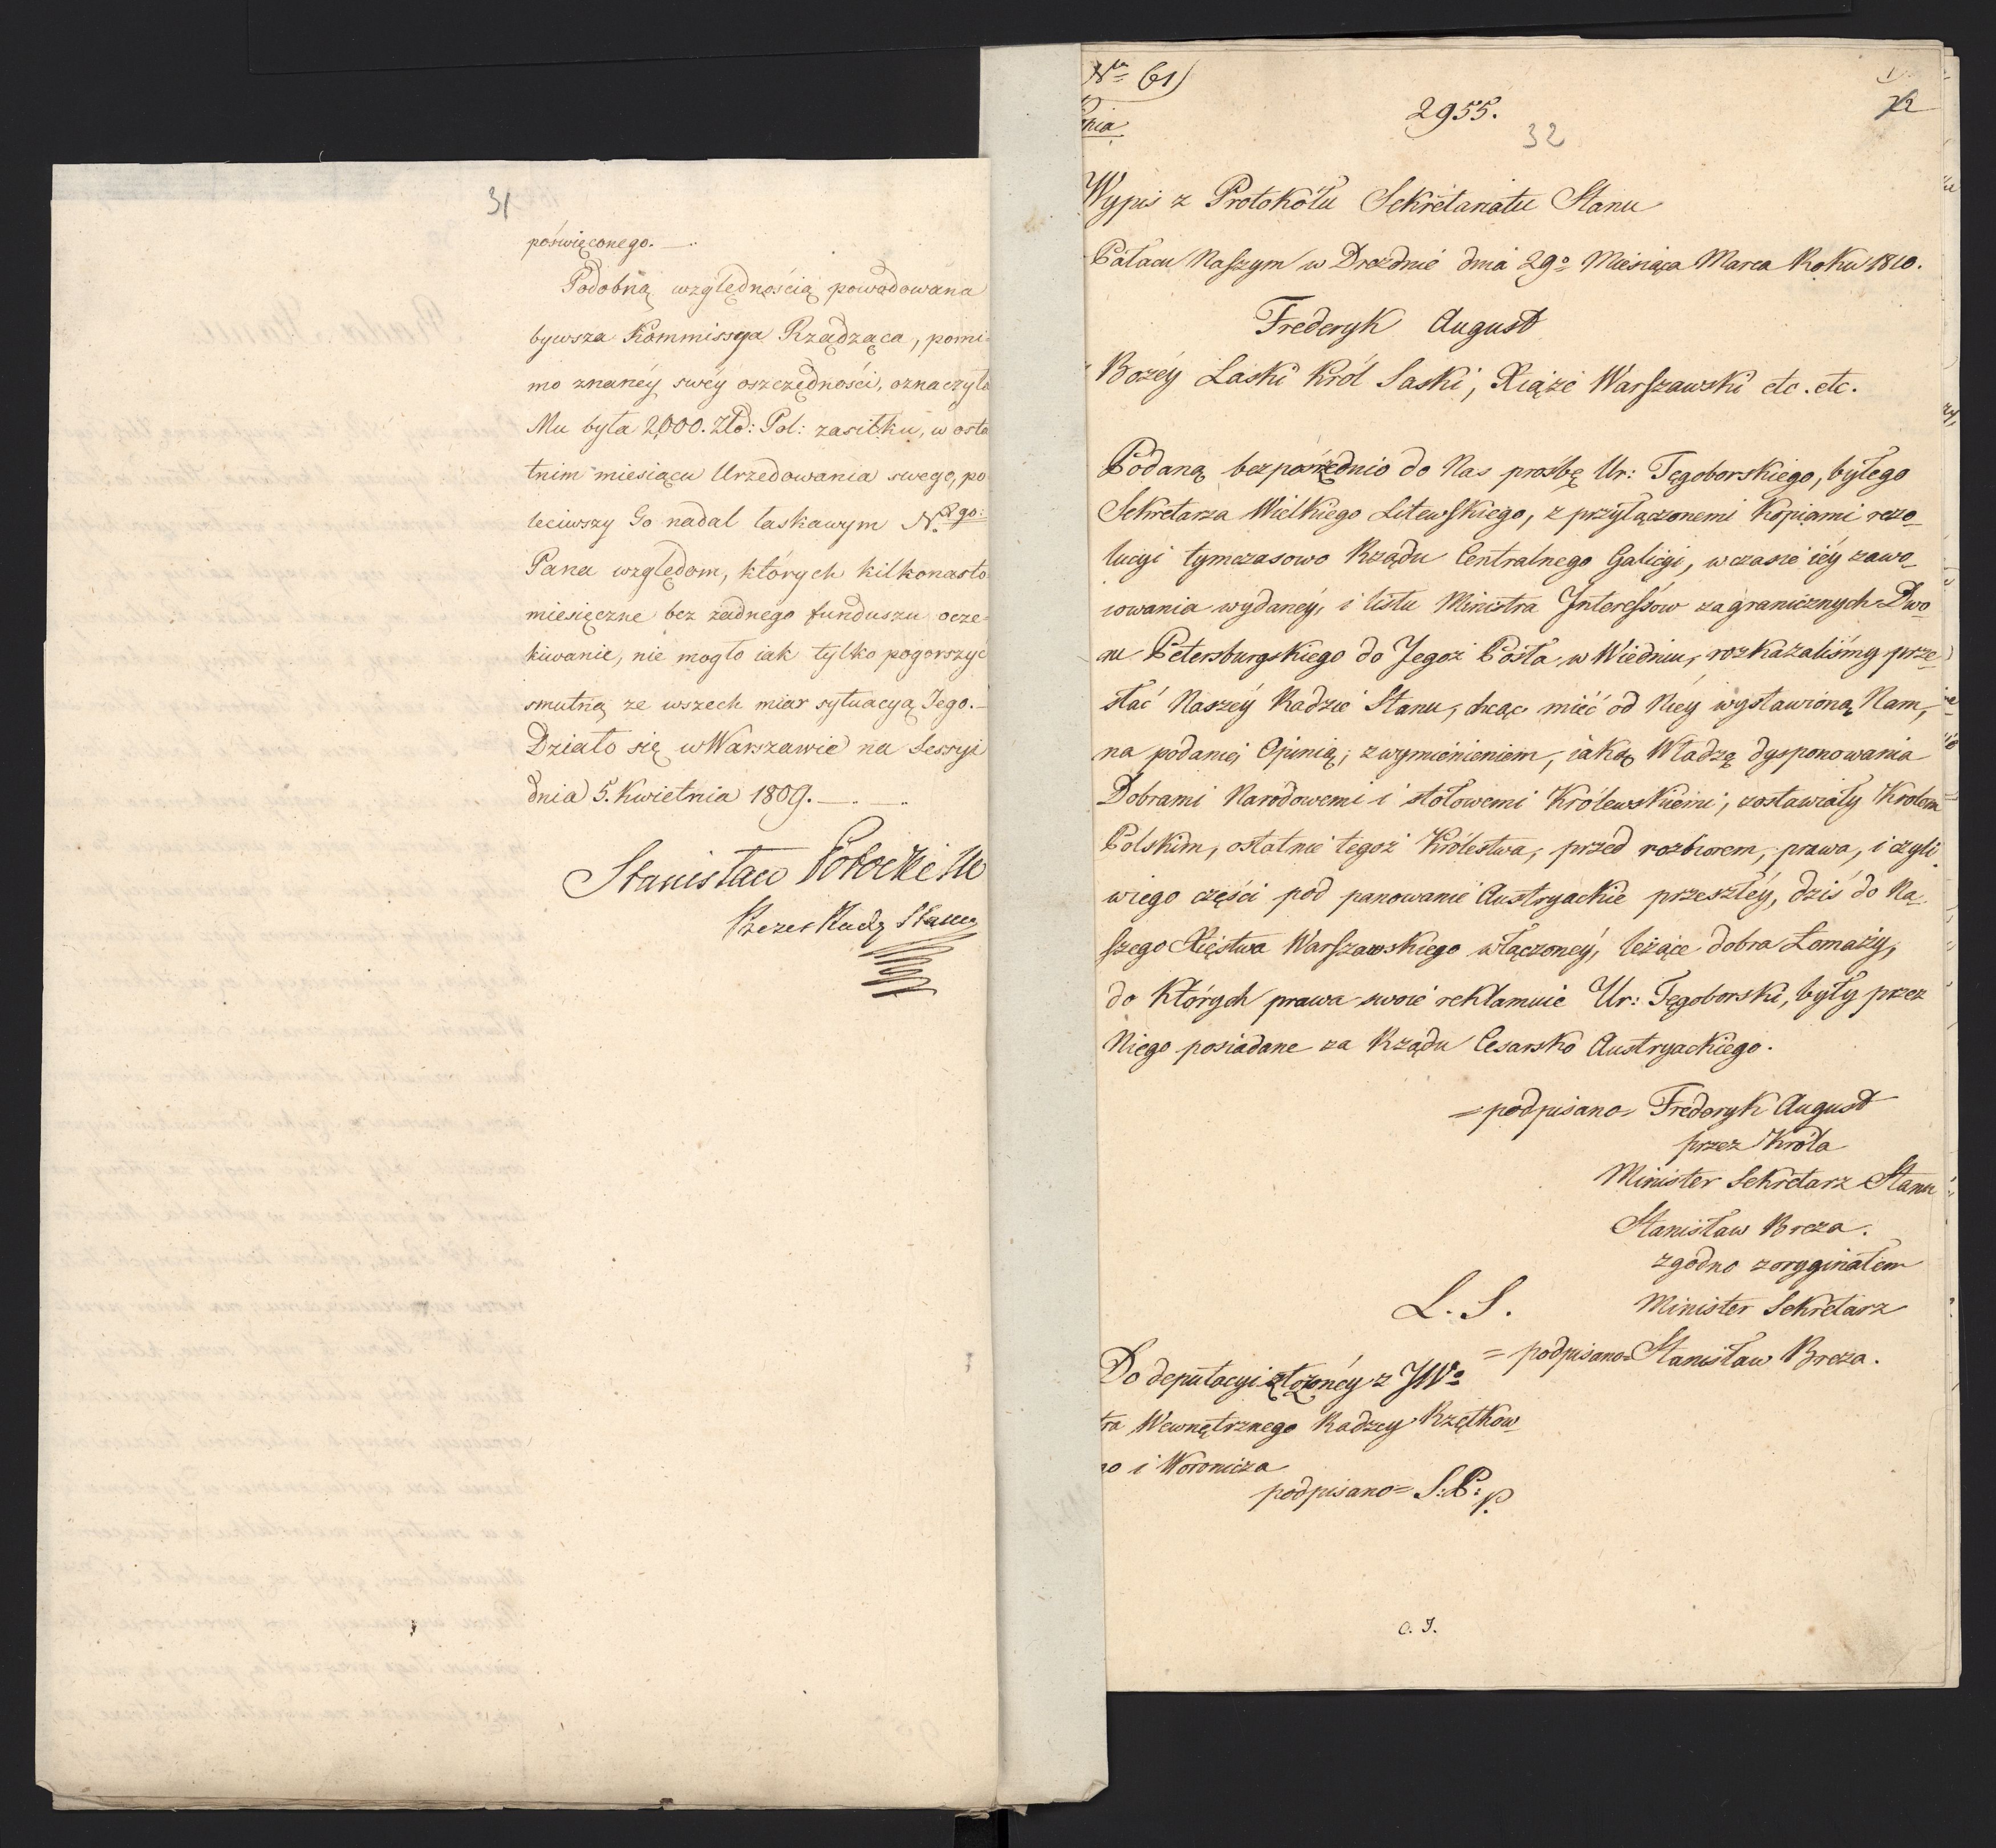 31
poświęconego. —.
Podobną względnością powodowana
bywsza Kommissya Rządząca, pomi-
mo znanéy swéy oszczędności, oznaczyła
Mu była 2,000. Złø: Pol: zasiłku, w osta
tnim miesiącu Urzedowania swego, po
leciwszy Go nadal łaskawym N. go:
Pana względom, których kilkonasto
miesięczne bez żadnego funduszu ocze-
kiwanie, nie mogło iak tylko pogorszyć
smutną ze wszech miar sytuacyą Jego.—
Działo się w Warszawie na Sessyi
dnia 5. Kwietnia 1809. —. —.
Stanisław Potocki
Prezes Rady Stanu
No 61)
ania
2955.
32
Wypis z Protokółu Sekretariatu Stanu
Pałacu Naszym w Dreźnie dnia 29o Miesiąca Marca Roku 1810.
Frederyk August
Bożéy Łaski Król Saski, Xiąże Warszawski etc. etc.
Podaną bezpośrzednio do Nas prośbę Ur: Tęgoborskiego, byłego
Sekretarza Wielkiego Litewskiego, z przyłączonemi kopiami rezo-
lucyi tymczasowo Rządu Centralnego Galicyi, w czasie iéy zawo-
iowania wydanéy, i listu Ministra Interessów zagranicznych Dwo-
ru Petersburgskiego do Jegoż Posła w Wiedniu, rozkazaliśmy prze-
słać Naszéy Radzie Stanu, chcąc mieć od Niéy wystawioną Nam,
na podanie, Opinią, z wymienieniem, iaką Władzę dysponowania
Dobrami Narodowemi i stołowemi Królewskiemi, zostawiały Krolom
Polskim, ostatnie tegoż Królestwa, przed rozbiorem, prawa, i czyli
w iego części pod panowanie Austryackie przeszłéy, dziś do Na-
szego Xięstwa Warszawskiego włączonéy, leżące dobra Łomazy,
do których prawa swoie reklamuie Ur: Tęgoborski, były przez
Niego posiadane za Rządu Cesarsko Austryackiego.
= podpisano = Frederyk August
przez Króla
Minister Sekretarz Stanu
Stanisław Breza.
zgodno z orygginałem
L. S.
Minister Sekretarz
= podpisano = Stanisław Breza.
Do deputacyi złożonéy z JWo
tra Wewnętrznego Radzcy Rzętkow-
go i Woronicza
podpisano = S. P. P.
C. I.